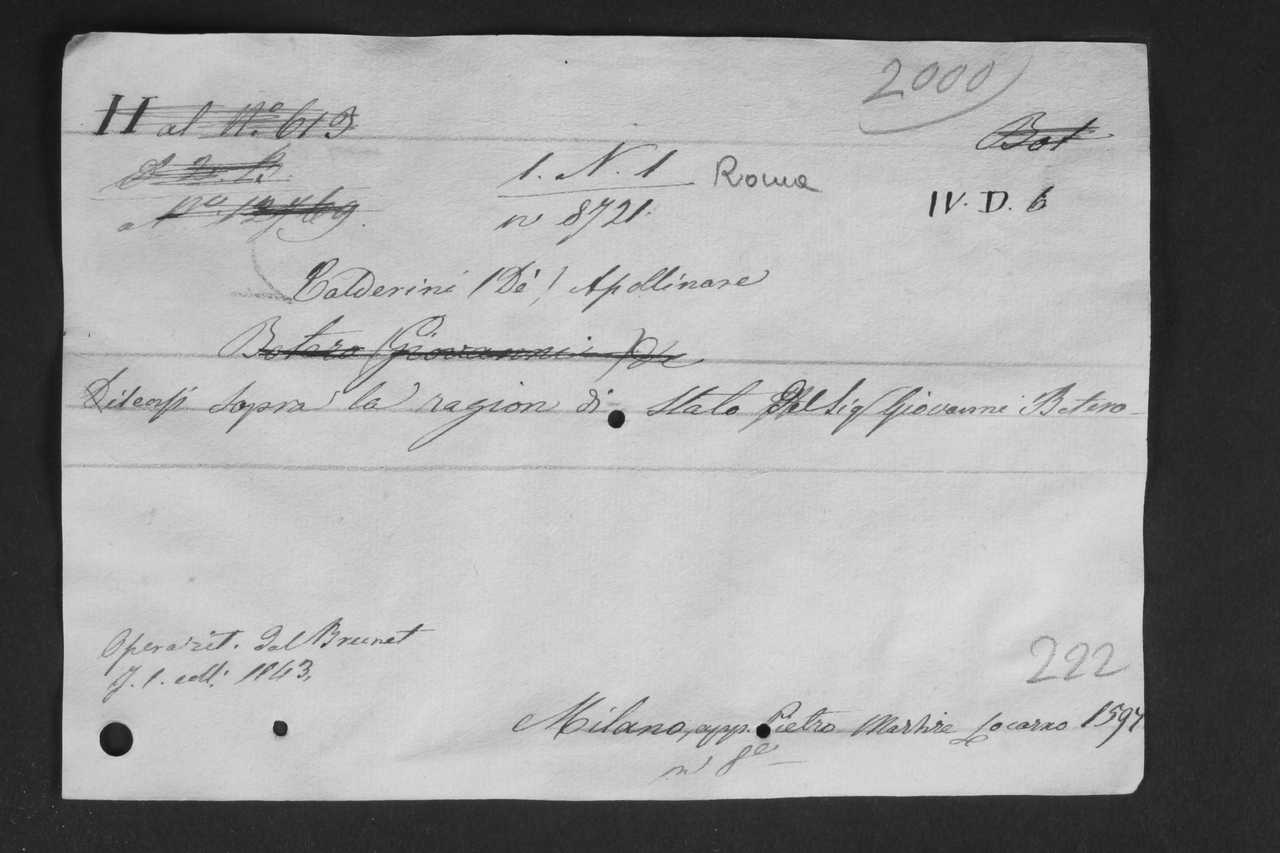 2000
H al N.º 613
Bot
1. N. 1
Roma
nº 8721.
IV. D. 6
Calderini (De) Apollinare
Botero Giovanni De
Discorsi sopra la ragion di Stato Del Sig Giovanni Botero
Opera cit. dal Brunet
1843.
222
Milano, app. Pietro Martire Locarno 1597
in 8º